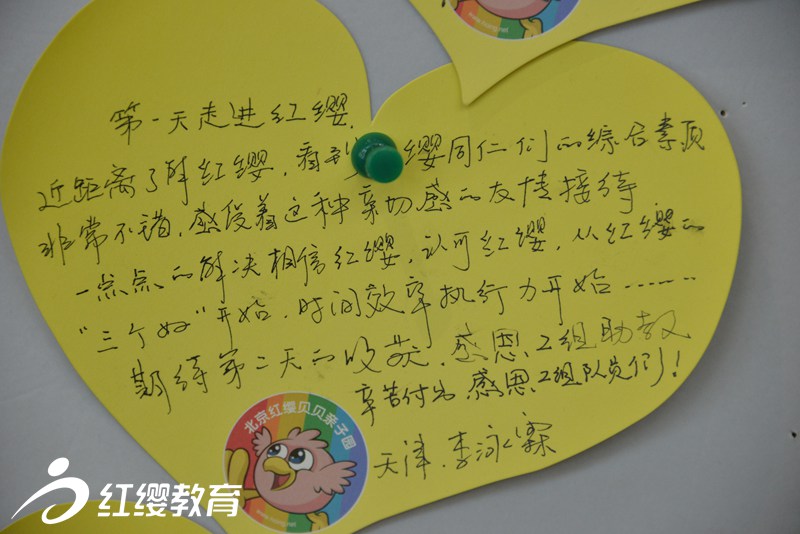 第一天走进红缨,
近距离了解红缨,看到 缨同仁们的综合素质
非常不错,感受着这种亲切感的友情接待
一点点的解决相信红缨,认可红缨,从红缨的
“三个如”开始,时间效率执行力开始……
期待第二天的收获,感恩工组助教
辛苦付出 感恩工组队员们!
天津.李泳霖
北京红缨贝贝亲子园
红缨教育